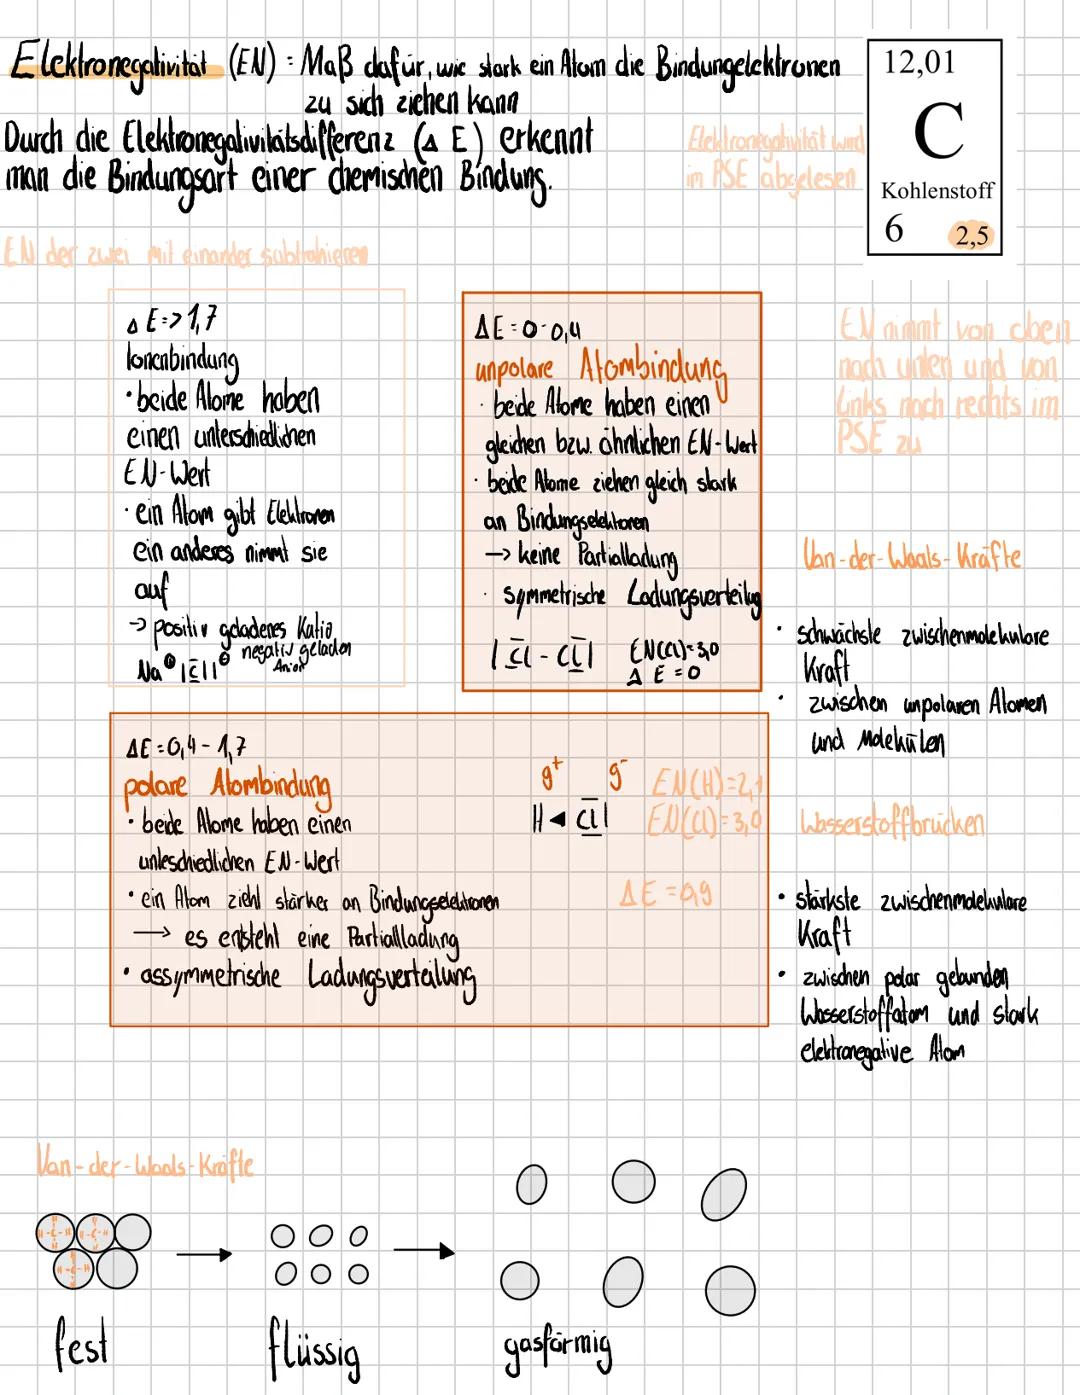 Elektronegativität (EN) : Maß dafür, wie stark ein Atom die Bindungelektronen
zu sich ziehen kann
Durch die Elektronegativitätsdifferenz (△ E) erkennt
man die Bindungsart einer chemischen Bindung.
Elektronegativität wird
im PSE abgelesen
12,01
C
Kohlenstoff
6 2,5
EN der zwei mit einander subtrahieren
△ E => 1,7
Ionenbindung
• beide Atome haben
einen unterschiedlichen
EN-Wert
• ein Atom gibt Elektronen
ein anderes nimmt sie
auf
-> positiv geladenes Katio
negativ geladen
Anion
Na⊕ |C̅l̲|⊖
ΔE = 0-0,4
unpolare Atombindung
· beide Atome haben einen
gleichen bzw. ähnlichen EN-Wert
· beide Atome ziehen gleich stark
an Bindungselektoren
-> keine Partialladung
· symmetrische Ladungsverteilug
|C̅l̲ - C̅l̲| EN(Cl)=3,0
Δ E = 0
EN nimmt von oben
nach unten und von
links nach rechts im
PSE zu
Van-der-Waals-Kräfte
• schwächste zwischenmolekulare
Kraft
• zwischen unpolaren Atomen
und Molekülen
ΔE = 0,4 - 1,7
polare Atombindung
• beide Atome haben einen
unteschiedlichen EN-Wert
• ein Atom zieht stärker an Bindungselektronen
→ es entsteht eine Partiallladung
• assymmetrische Ladungsverteilung
δ+ δ-
H ◄ C̅l̲|
EN(H)=2,1
EN(Cl)=3,0
ΔE = 0,9
Wasserstoffbrücken
• stärkste zwischenmolekulare
Kraft
• zwischen polar gebunden
Wasserstoffatom und stark
elektronegative Atom
Van-der-Waals-Kräfte
fest
flüssig
gasförmig